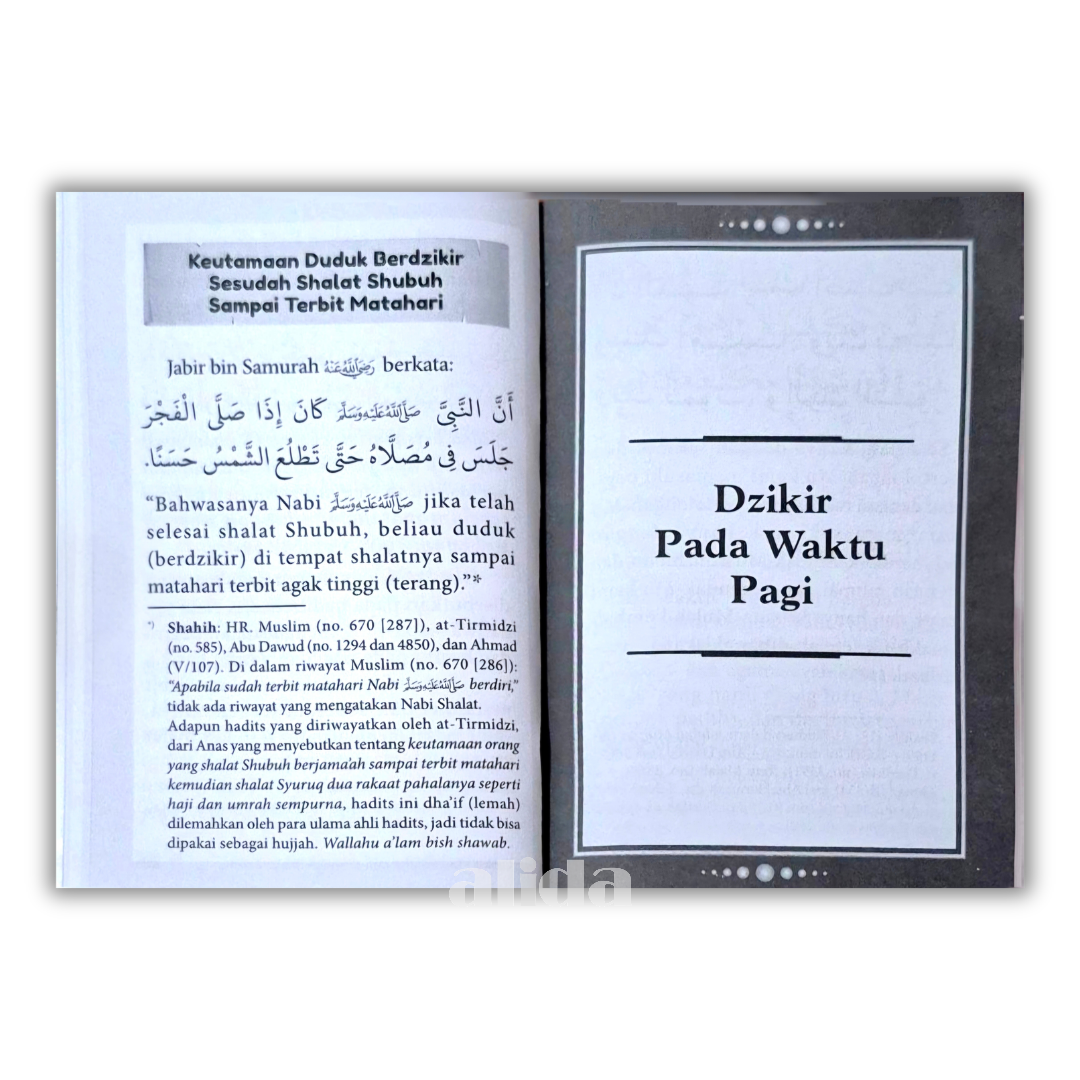 Keutamaan Duduk Berdzikir
Sesudah Shalat Shubuh
Sampai Terbit Matahari
Jabir bin Samurah رَضِيَ اللَّهُ عَنْهُ berkata:
أَنَّ النَّبِيَّ صَلَّى اللَّهُ عَلَيْهِ وَسَلَّمَ كَانَ إِذَا صَلَّى الْفَجْرَ
جَلَسَ فِي مُصَلَّاهُ حَتَّى تَطْلُعَ الشَّمْسُ حَسَنًا.
“Bahwasanya Nabi صَلَّى اللَّهُ عَلَيْهِ وَسَلَّمَ jika telah
selesai shalat Shubuh, beliau duduk
(berdzikir) di tempat shalatnya sampai
matahari terbit agak tinggi (terang).”*
*) Shahih: HR. Muslim (no. 670 [287]), at-Tirmidzi
(no. 585), Abu Dawud (no. 1294 dan 4850), dan Ahmad
(V/107). Di dalam riwayat Muslim (no. 670 [286]):
“Apabila sudah terbit matahari Nabi صَلَّى اللَّهُ عَلَيْهِ وَسَلَّمَ berdiri,”
tidak ada riwayat yang mengatakan Nabi Shalat.
Adapun hadits yang diriwayatkan oleh at-Tirmidzi,
dari Anas yang menyebutkan tentang keutamaan orang
yang shalat Shubuh berjama'ah sampai terbit matahari
kemudian shalat Syuruq dua rakaat pahalanya seperti
haji dan umrah sempurna, hadits ini dha'if (lemah)
dilemahkan oleh para ulama ahli hadits, jadi tidak bisa
dipakai sebagai hujjah. Wallahu a'lam bish shawab.
Dzikir
Pada Waktu
Pagi
alida